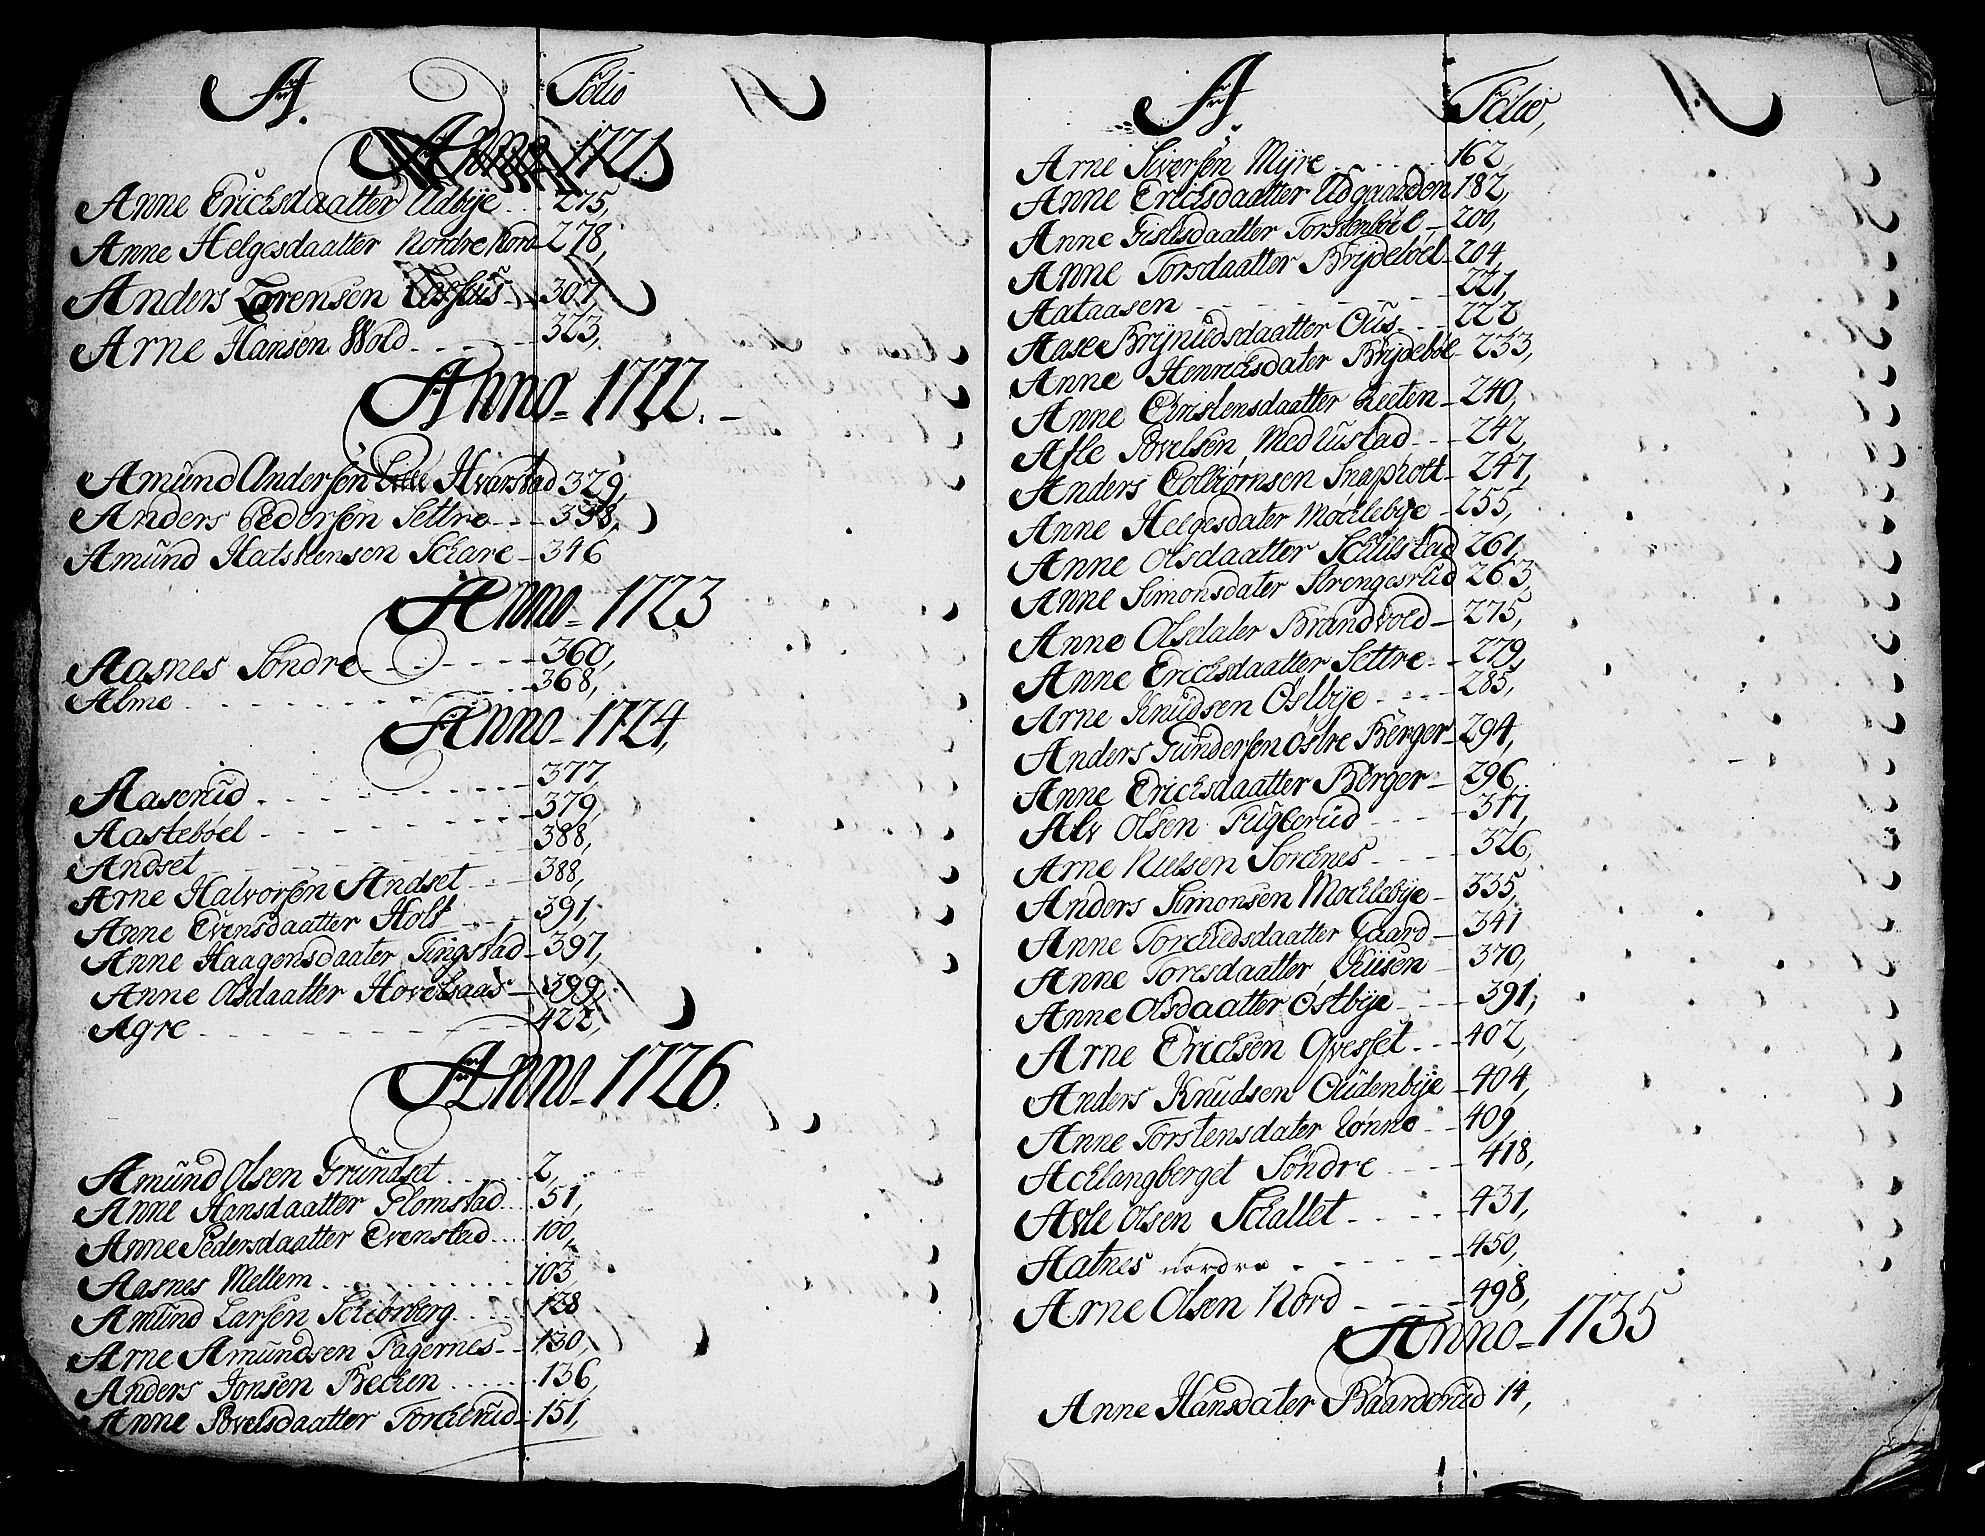 A. Folio
Anno 1721
Anne Erichsdaatter Udbÿe 275,
Anne Helgesdaatter Nordre Nord 278,
Anders Lorensen 307,
Arne Hansen Wold 323,
Anno 1722.
Amund Andersen Lille Hvarstad 329,
Anders Pedersen Settre 338,
Amund Halstensen Schare 346
Anno 1723
Aasnes Söndre 360,
Alme 368,
Anno 1724,
Aaserud 377,
Aasteböel 379,
Andset 388,
Arne Halvorsen Andset 388,
Anne Evensdaatter Holt 391,
Anne Haagensdaater Tingstad 397,
Anne Olsdaatter Hovelsaas 399,
Agre 422,
Anno 1726.
Amund Olsen Grundset 2,
Anne Hansdaatter Flomstad 51,
Anne Pedersdaatter Evenstad 100,
Aasnes Mellem 103,
Amund Larsen Schiörberg 128
Arne Amundsen Fagernes 130,
Anders Jonsen Bechen 136,
Anne Povelsdaatter Torcherud 151,
A Folio,
Arne Siversen Mÿre 162,
Anne Erichsdaatter Udgaarden 182,
Anne Gislesdaatter Torstenböel 200,
Anne Torsdaatter Brÿdeböel 204,
Aataasen 221,
Aase Brÿnildsdaatter Ous 222
Anne Henrichsdater Brÿdeböl 233,
Anne Christensdaatter Leeten 240,
Asle Povelsen Medlustad 242,
Anders Colbiörnsen Snaphott 247,
Anne Helgesdater Möchlebÿe 255,
Anne Olsdaatter Schulstad 261,
Anne Simonsdater Strengesrud 263,
Anne Olsdater Brandvold 275,
Anne Erichsdaatter Settre 279,
Arne Knudsen Östbÿe 285,
Anders Gundersen Östre Berger 294,
Anne Erichsdaatter Berger 296,
Alv Olsen Fuglerud 317,
Arne Nielsen Sorchnes 326,
Anders Simonsen Mochlebÿe 335,
Anne Torchildsdaatter Gaard 341
Anne Toresdaatter 370,
Anne Olsdaatter Östbÿe 391,
Arne Erichsen Qvesset 402,
Anders Knudsen Oudenbÿe 404,
Anne Torstensdater Lönne 409,
Achlangberget Söndre 418,
Asle Olsen Schallet 431,
Aatnes nordre 450,
Arne Olsen Nord 498,
Anno 1735
Anne Hansdater Baarderud 14,